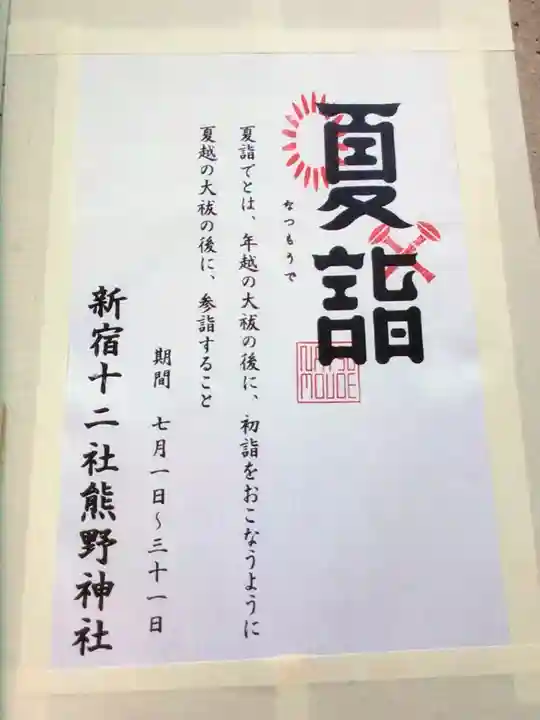 夏詣
なつもうで
NATSU
MOUDE
夏詣でとは、年越の大祓の後に、初詣をおこなうように
夏越の大祓の後に、参詣すること
期間　七月一日～三十一日
新宿十二社熊野神社